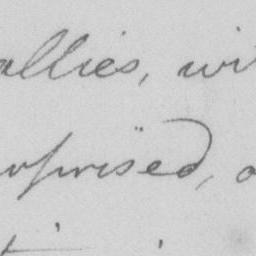 allies, wi
urprised, o